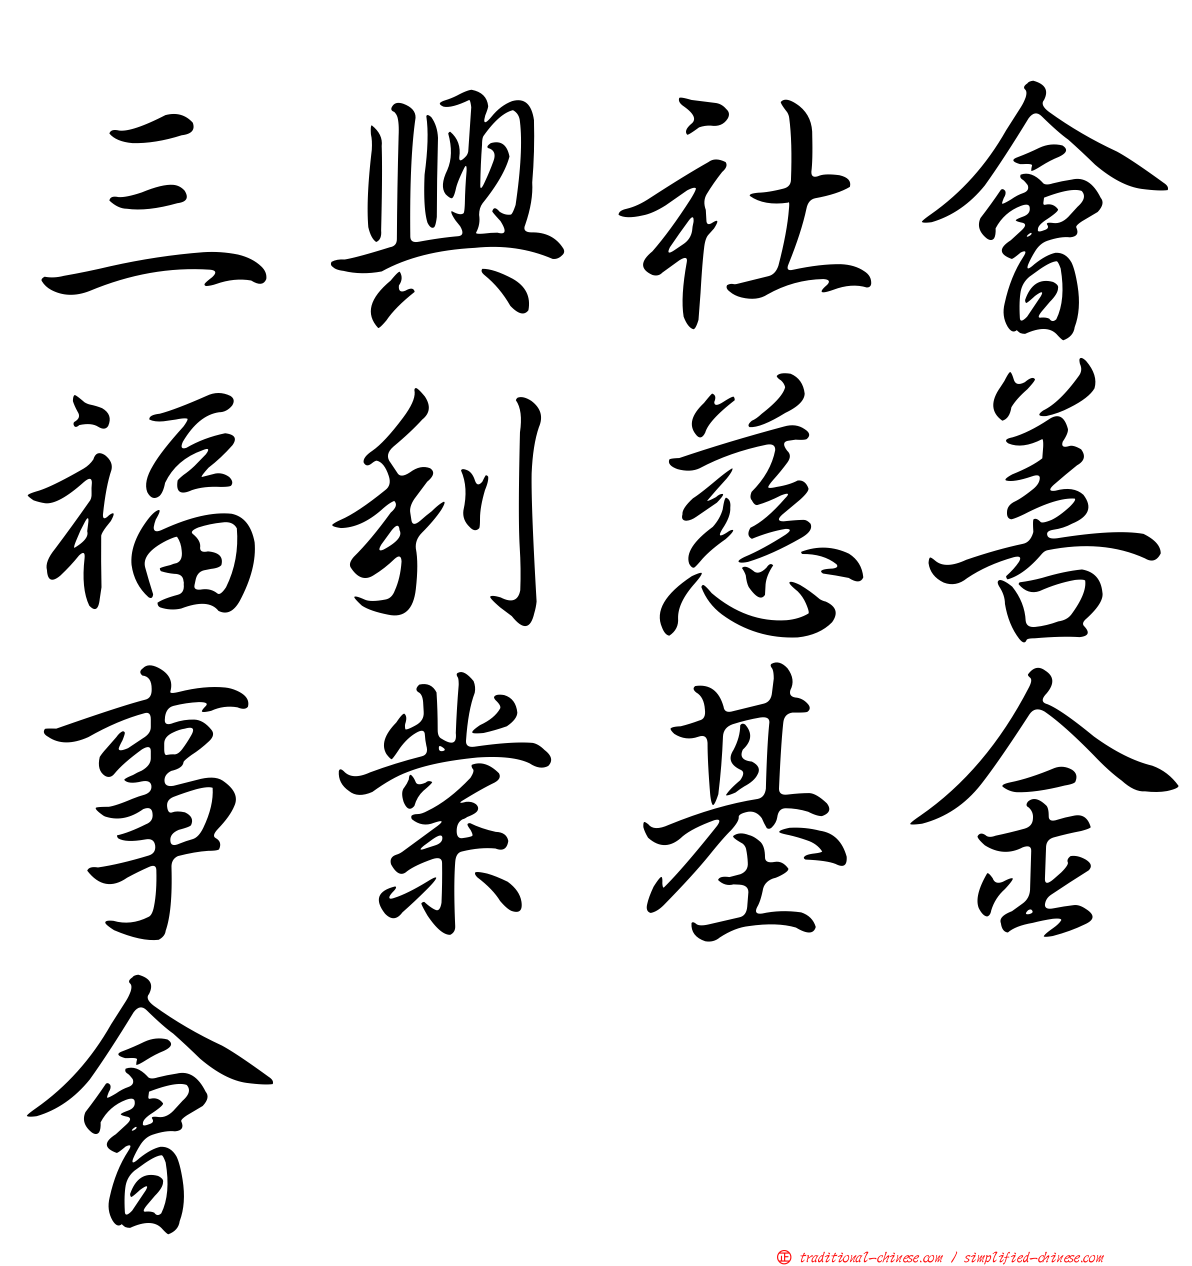 三興社會
福利慈善
事業基金
會
正 traditional-chinese.com / simplified-chinese.com